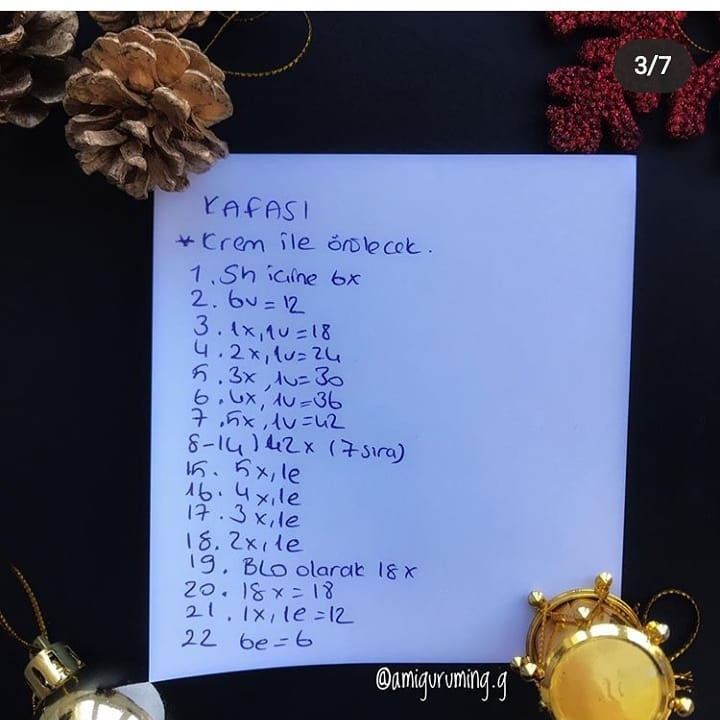 3/7
KAFASI
* Krem ile örülecek.
1. Sh içine 6x
2. 6v = 12
3. 1x, 1v = 18
4. 2x, 1v = 24
5. 3x, 1v = 30
6. 4x, 1v = 36
7. 5x, 1v = 42
8-14) 42x (7 sıra)
15. 5x, 1e
16. 4x, 1e
17. 3x, 1e
18. 2x, 1e
19. BLO olarak 18x
20. 18x = 18
21. 1x, 1e = 12
22 6e = 6
@amiguruming.g